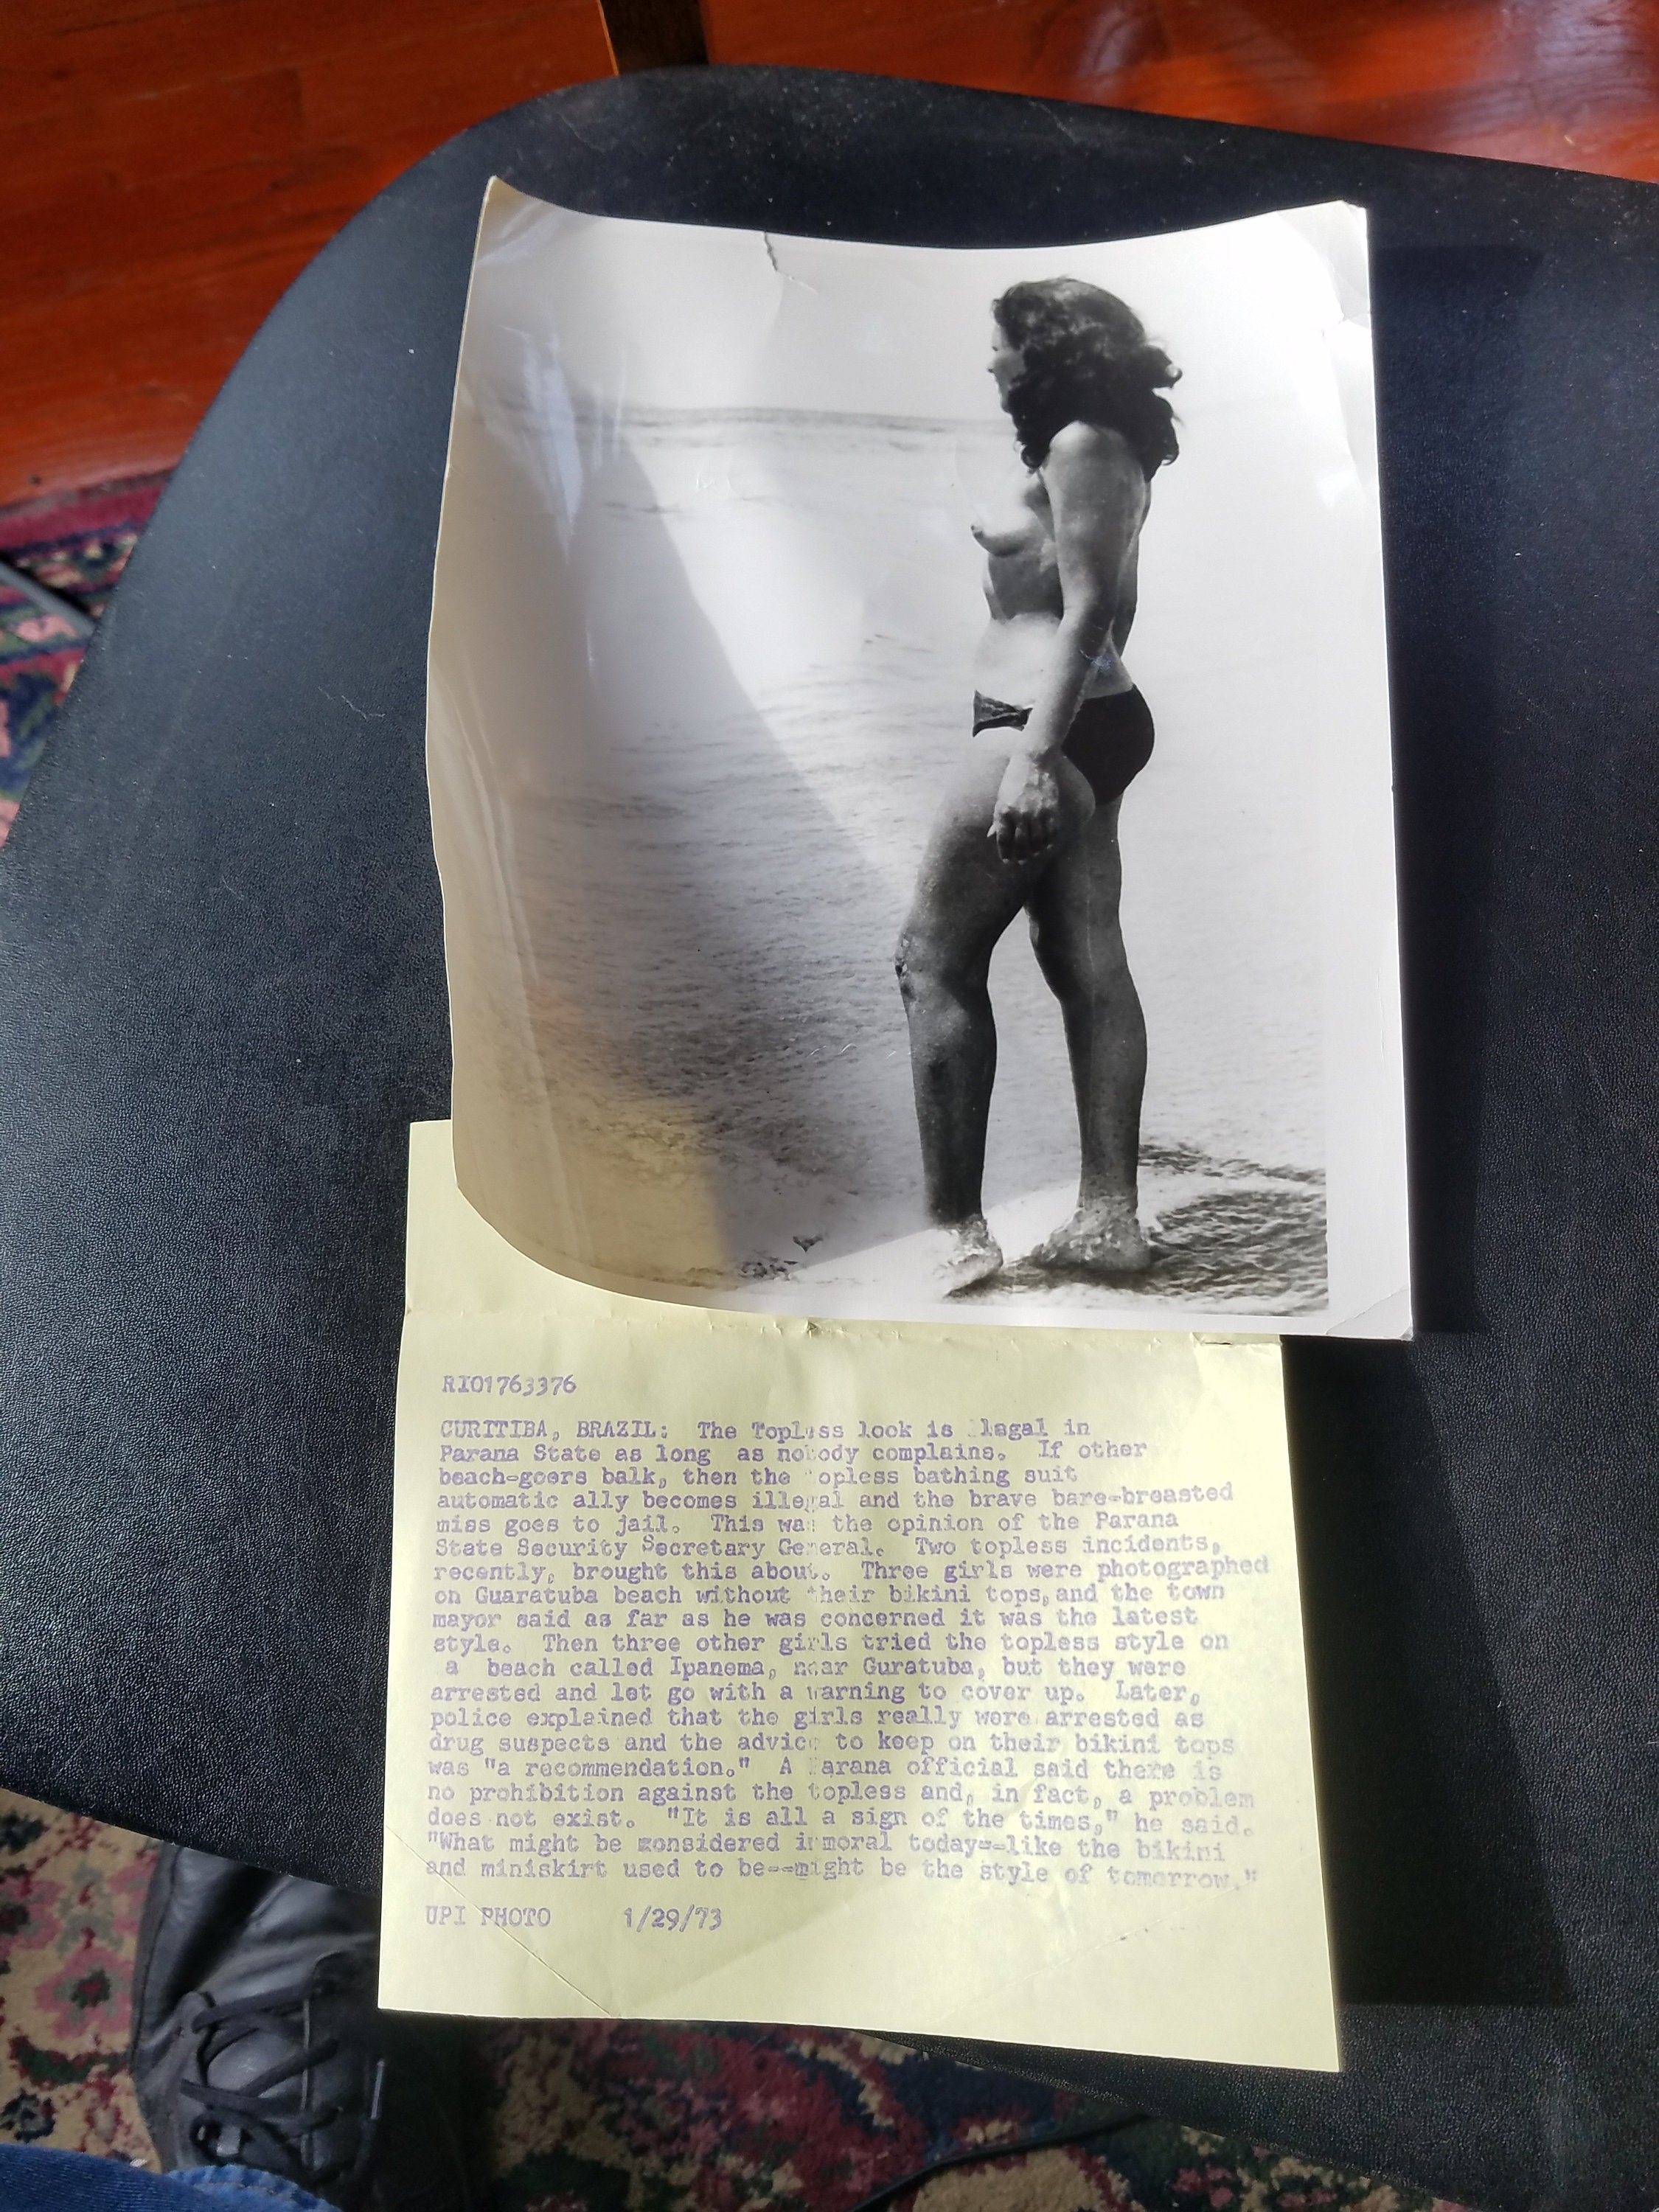 RIO1763376
CURITIBA, BRAZIL: The Topless look is legal in
Parana State as long as nobody complains. If other
beach-goers balk, then the topless bathing suit
automatic ally becomes illegal and the brave bare-breasted
miss goes to jail. This was the opinion of the Parana
State Security Secretary General. Two topless incidents,
recently, brought this about. Three girls were photographed
on Guaratuba beach without their bikini tops, and the town
mayor said as far as he was concerned it was the latest
style. Then three other girls tried the topless style on
a beach called Ipanema, near Guratuba, but they were
arrested and let go with a warning to cover up. Later,
police explained that the girls really were arrested as
drug suspects and the advice to keep on their bikini tops
was "a recommendation." A Parana official said there is
no prohibition against the topless and, in fact, a problem
does not exist. "It is all a sign of the times," he said.
"What might be considered immoral today--like the bikini
and miniskirt used to be--might be the style of tomorrow."
UPI PHOTO 1/29/73